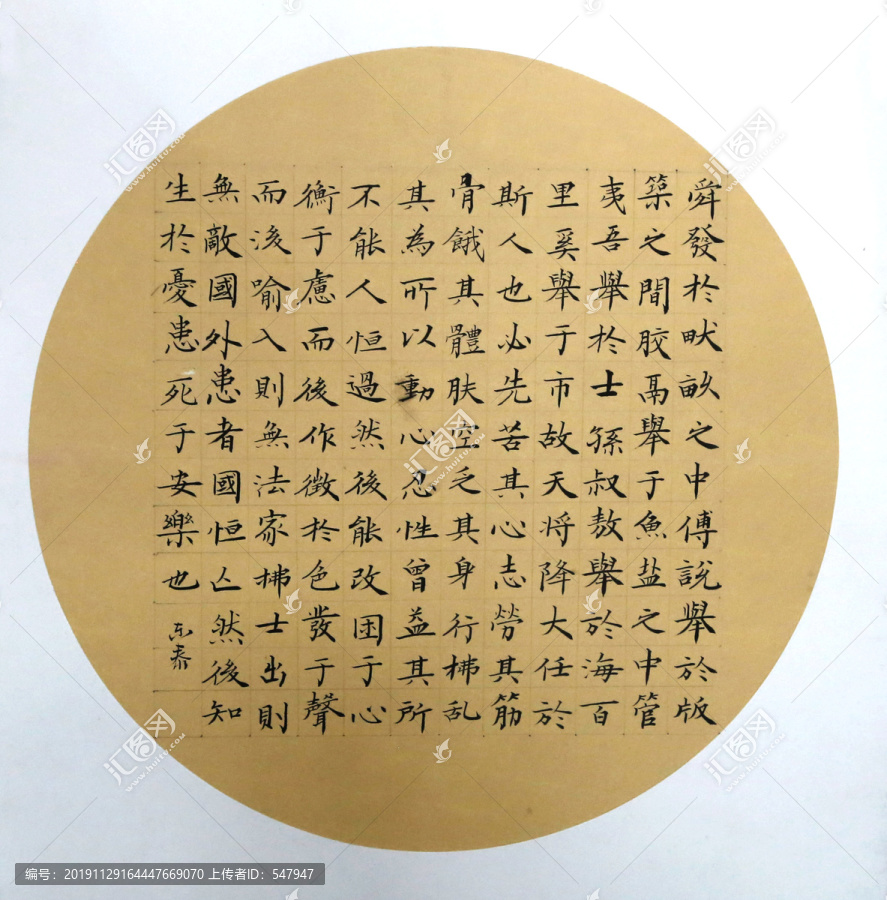 舜發於畎畝之中傅說舉於版
築之間胶鬲舉于魚盐之中管
夷吾舉於士孫叔敖舉於海百
里奚舉于市故天将降大任於
斯人也必先苦其心志勞其筋
骨餓其體肤空乏其身行拂乱
其為所以動心忍性曾益其所
不能人恒過然後能改困于心
衡于慮而後作徵於色發于聲
而後喻入則無法家拂士出則
無敵國外患者國恒亡然後知
生於憂患死于安樂也
东泰
汇图网
www.huitu.com
汇图网
www.huitu.com
汇图网
www.huitu.com
汇图网
www.huitu.com
汇图网
www.huitu.com
编号：20191129164447669070 上传者ID：547947